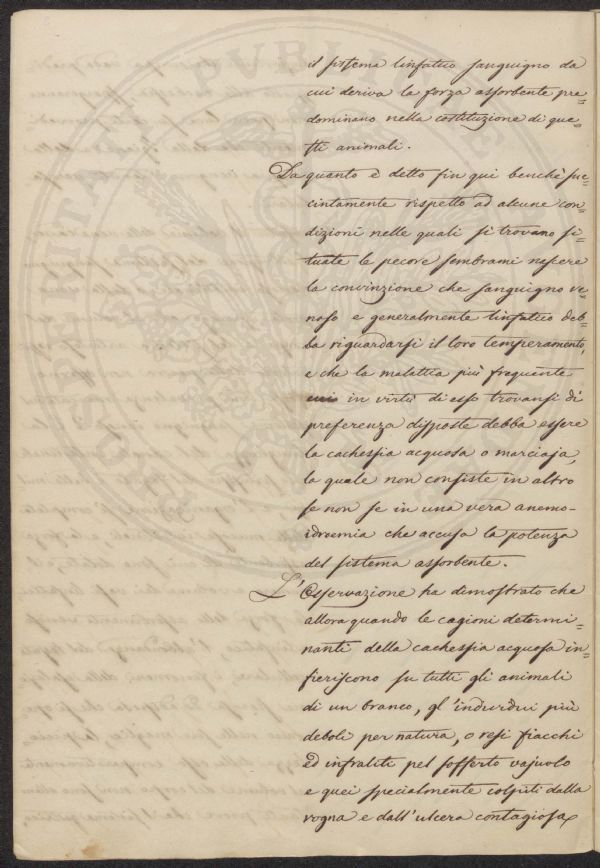 il sistema linfatico sanguigno da
cui deriva la forza assorbente pre=
dominano nella costituzione di que=
sti animali.
Da quanto è detto fin qui benchè suc=
cintamente rispetto ad alcune con=
dizioni nelle quali si trovano si=
tuate le pecore sembrami nascere
la convinzione che sanguigno ve=
noso e generalmente linfatico deb=
ba riguardarsi il loro temperamento,
e che la malattia più frequente
cui in virtù di esso trovansi di
preferenza disposte debba essere
la cachessia acquosa o marciaja,
la quale non consiste in altro
se non se in una vera anemo-
idroemia che accusa la potenza
del sistema assorbente.
L'Osservazione ha dimostrato che
allora quando le cagioni determi=
nanti della cachessia acquosa in=
fieriscono su tutti gli animali
di un branco, gl'individui più
deboli per natura, o resi fiacchi
ed infraliti pel sofferto vajuolo
e quei specialmente colpiti dalla
rogna e dall'ulcera contagiosa